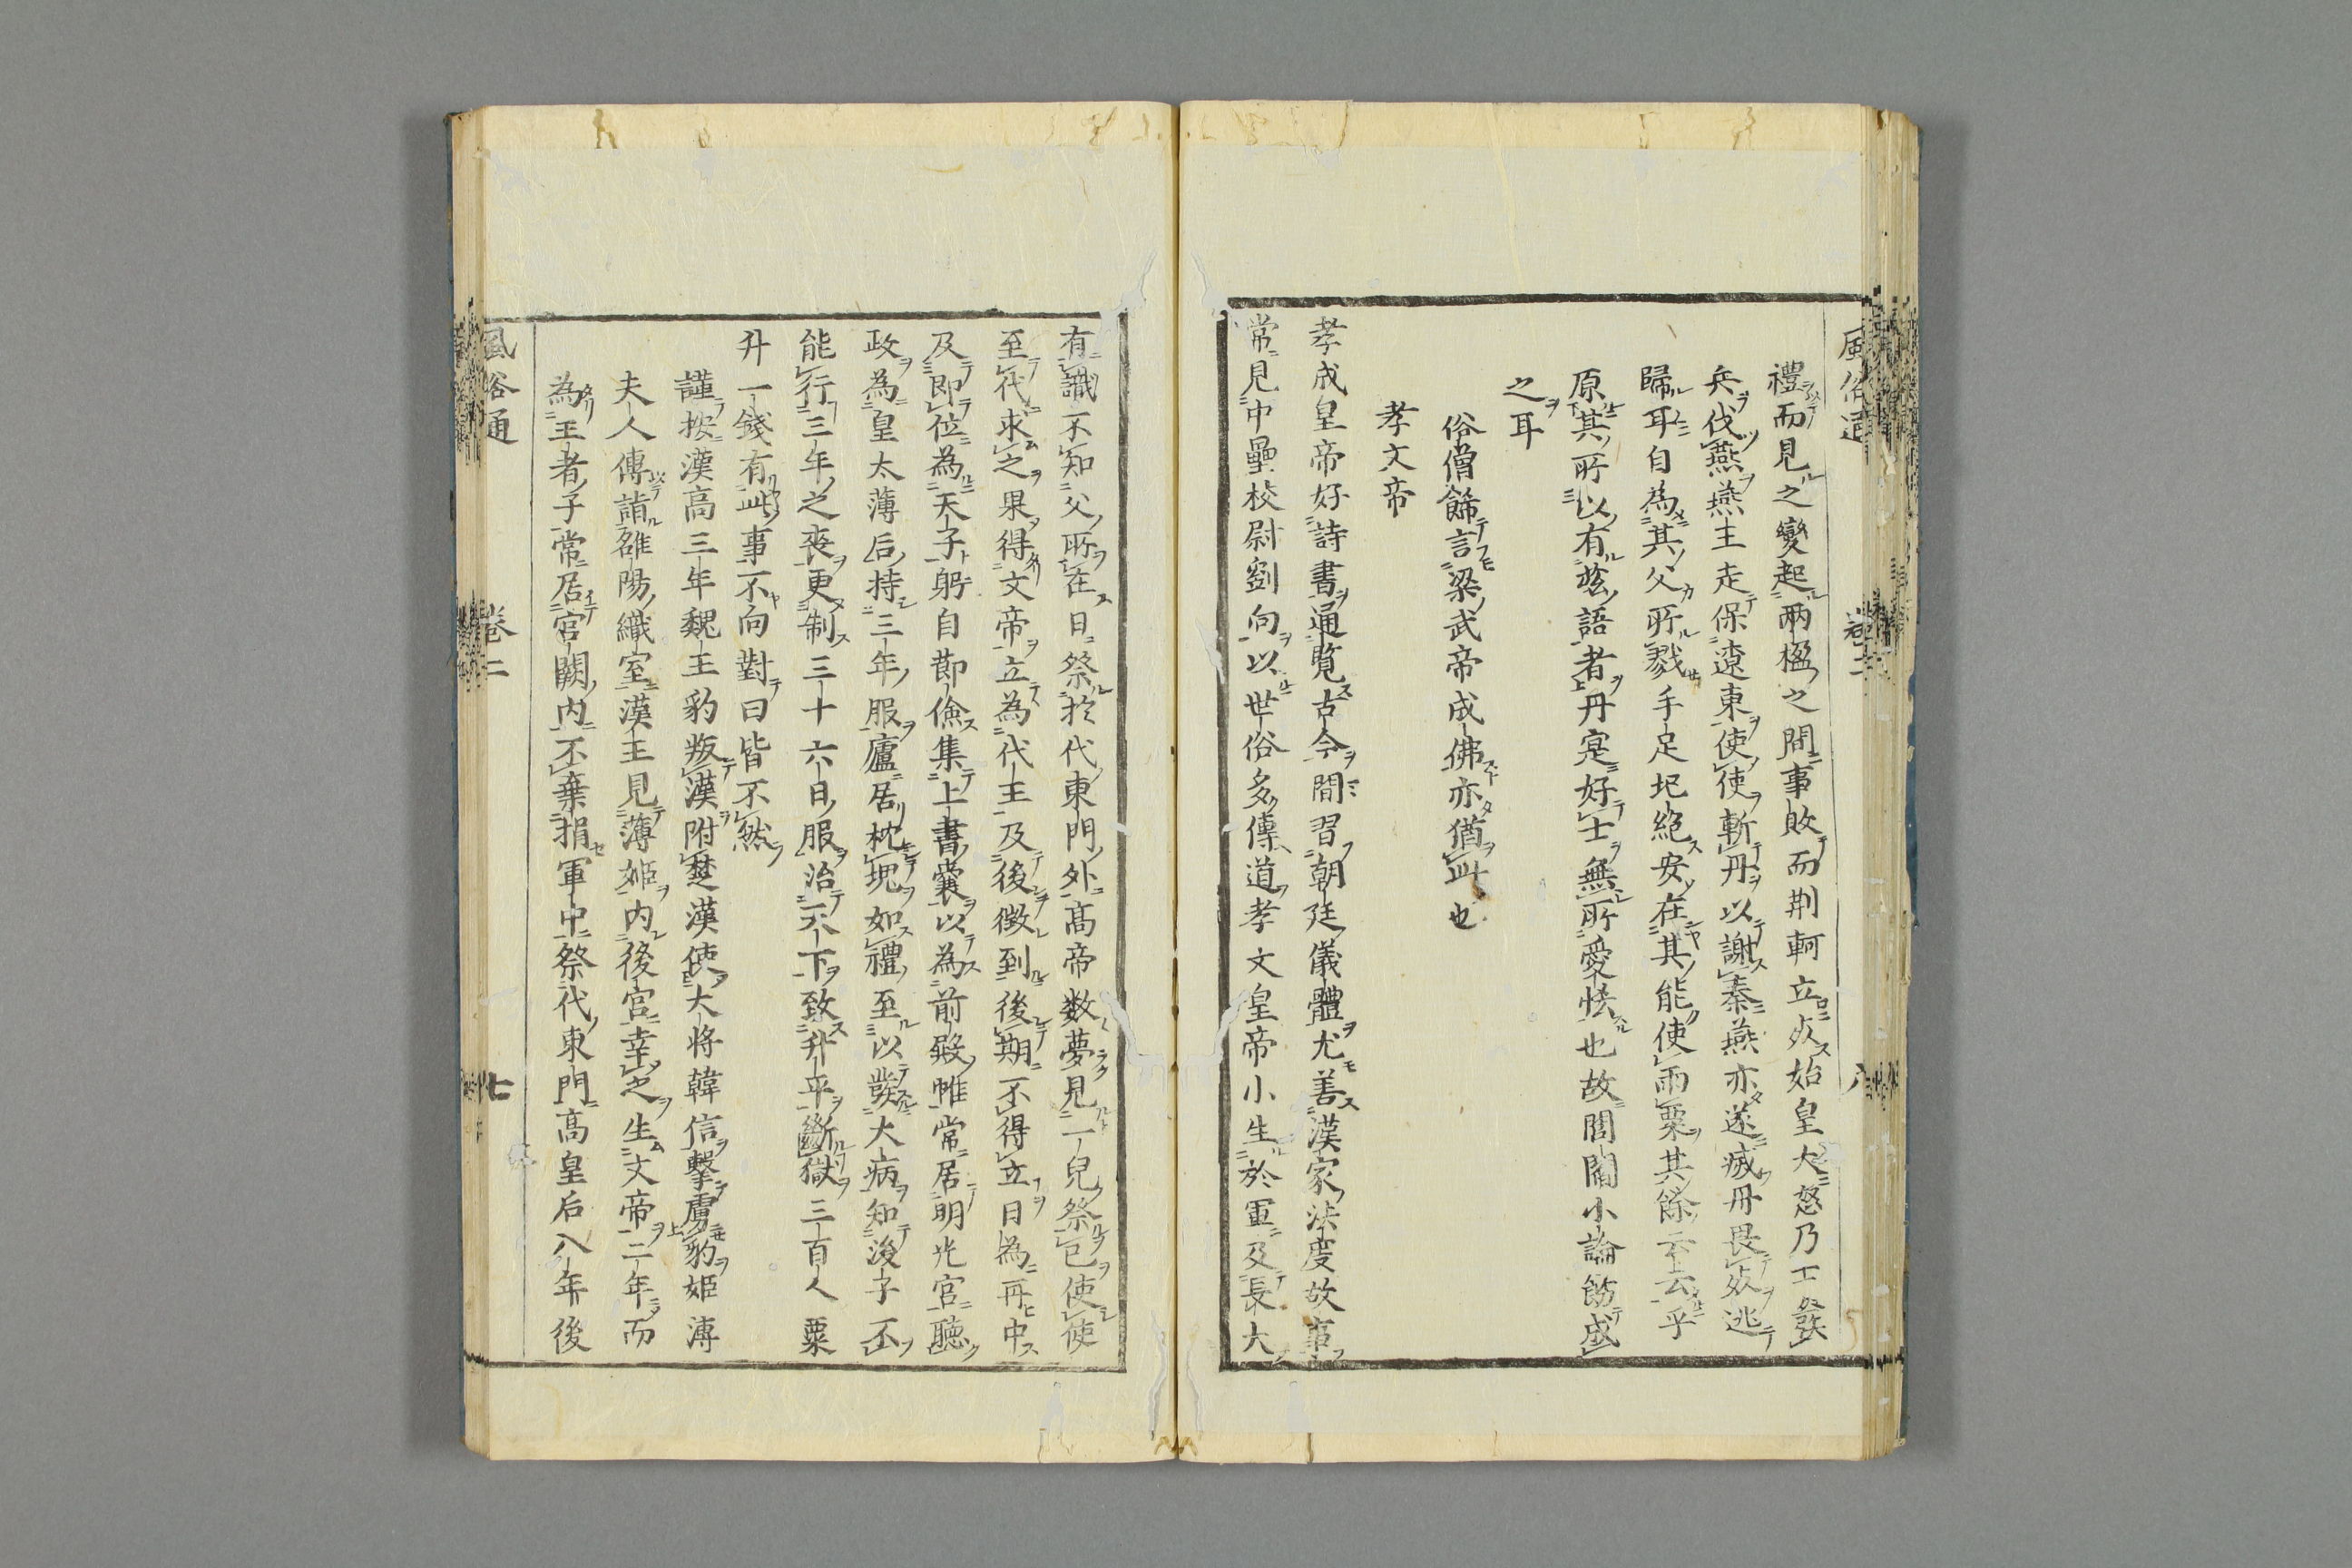 風俗通 卷二 八
禮而見之變起兩楹之間事敗而荆軻立死始皇大怒乃益發
兵伐燕燕王走保遼東使使斬丹以謝秦燕亦遂滅丹畏死逃
歸耳自為其父所戮手足圮絶安在其能使雨粟其餘云云乎
原其所以有玆語者丹寔好士無所愛恡也故閭閻小論飭成
之耳
俗僧餙言梁武帝成佛亦猶此也
孝文帝
孝成皇帝好詩書通覧古今間習朝廷儀體尤善漢家法度故事
常見中壘校尉劉向以世俗多傳道孝文皇帝小生於軍及長大
有識不知父所在日祭於代東門外高帝数夢見一兒祭已使使
至代求之果得文帝立為代王及後徴到後期不得立日為再中
及即位為天子躬自節儉集上書囊以為前殿帷常居明光宫聽
政為皇太薄后持三年服廬居枕塊如禮至以發大病知後子不
能行三年之喪更制三十六日服治天下致升平斷獄三百人粟
升一錢有此事不向對曰皆不然
謹按漢高三年魏王豹叛漢附楚漢使大将韓信擊虜豹姫溥
夫人傳詣雒陽織室漢王見薄姫内後宫幸之生文帝二年而
為王者子常居宫闕内不棄捐軍中祭代東門高皇后八年後
風俗通 卷二 七